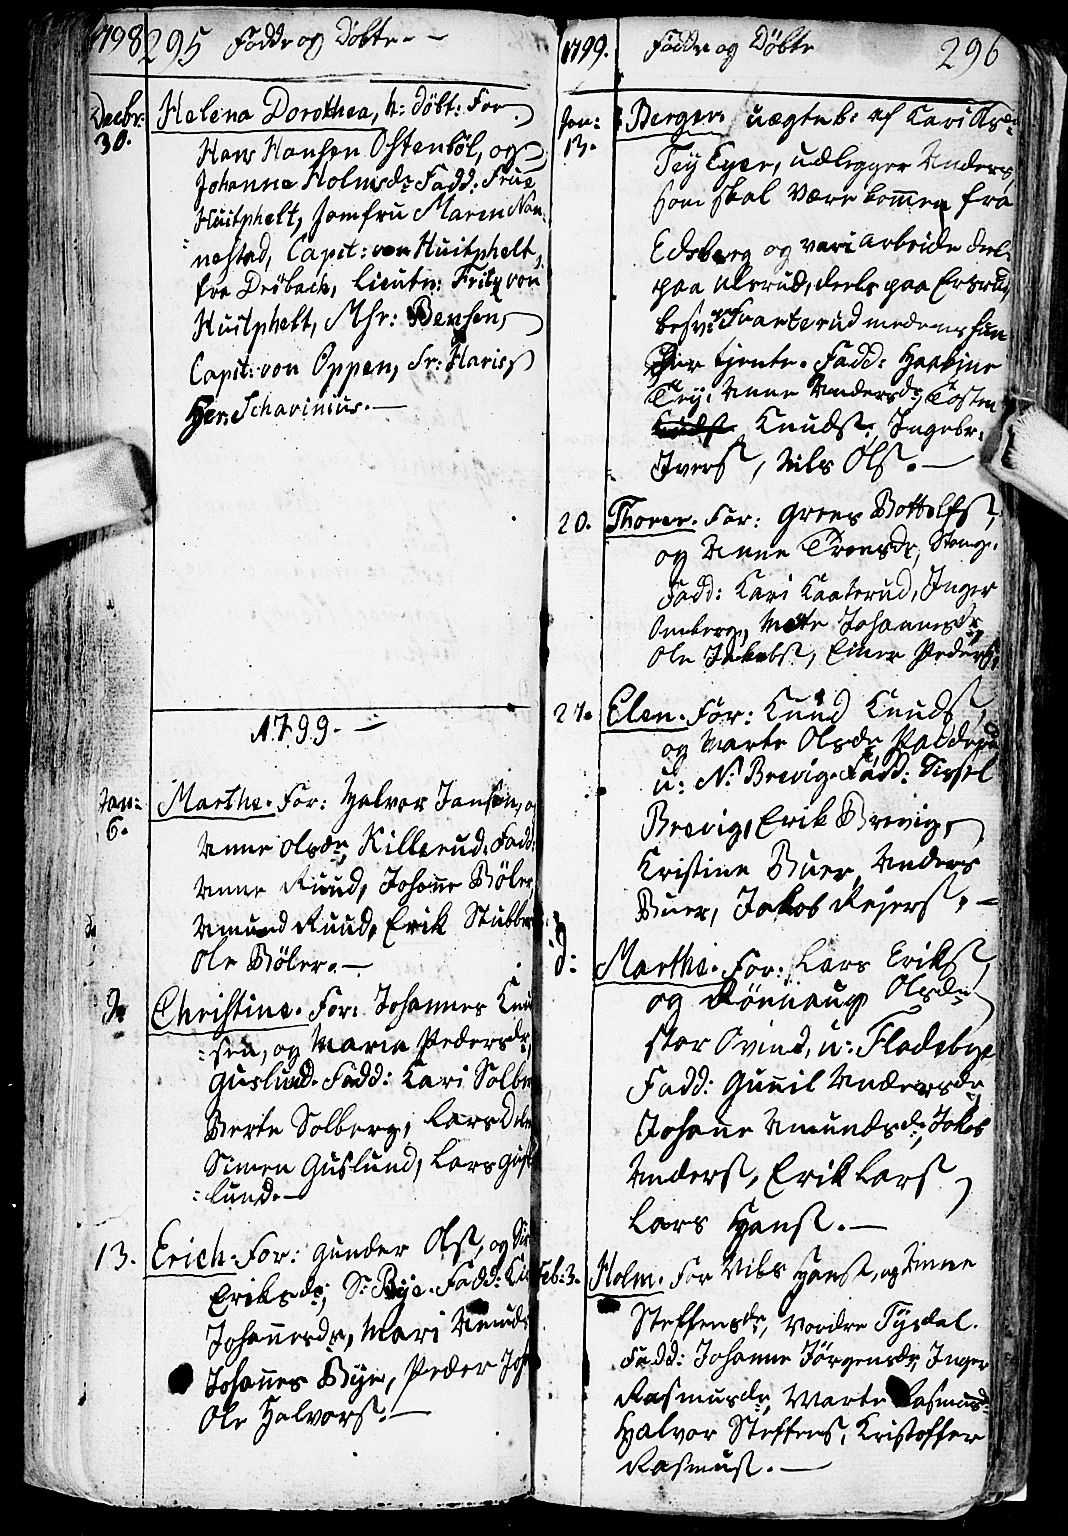 1798 295 Fødde og Døbte.
Decbr: 30. Helena Dorothea, h: døbt: For:
Hans Hansen Ostenbøl, og
Johanna Holmsdr Fadd: Frue
Huitphelt, Jomfru Maren Nan:
nestad, Capit: von Huitphelt,
fra Drøbach, Lieutn: Fritz von
Huitphelt, Mhr: Bensen,
Capit: von Oppen, Sr: Haris,
Her: Scharinius.
1799.
Jan: 6. Marthe. For: Halvor Jansen, og
Anne Olsdr, Killerud. Fadd:
Anne Ruud, Johanne Bøler
Amund Ruud, Erik Stubber
Ole Bøler.
Christine. For: Johannes Knu
:sen, og Maria Pedersdr,
Guslund. Fadd: Kari Solbe
Berte Solberg, Lars
Simen Guslund, Lars Gus
:lund.
13. Erich. For: Gunder Ols, og Si
Eriksdr, S: Bye. Fadd:
Johannesdr, Mari Amunds
Johannes Bye, Peder Joh
Ole Halvors.
1799. Fødde og Døbte 296
Jan: 13. Berger. uægte b: af Kari
Tey Eyer, udlegger Anders,
som skal være kommen fra
Edsberg og vari arbeide deels
paa Ulsrud, deels paa Ersrud,
besv: Svarterud medens hun
der tjente. Fadd: Haagine
Tey, Anne Andersdr, Tosten
Knuds, Ingebr:
Ivers, Nils Ols.
20. Thorer. For: Greus Bottolfs,
og Anne Tronsdr, Stange.
Fadd: Kari Kaaterud, Inger
Omberg, Mette Johannesdr,
Ole Jakobs, Einer Peders,
27. Elen. For: Knud Knuds,
og Marte Olsdr Padderud
u: N: Brevig. Fadd: Sissel
Brevig, Erik Brevig,
Kristine Buer, Anders
Buer, Jakob Rejers,
d: Marthe. For: Lars Eriks,
og Rønnaug Olsdr,
stor Ovind, u: Fladebye
Fadd: Gunil Andersdr,
Johanne Amundsdr, Jakob
Anders, Erik Lars,
Lars Hans.
Feb: 3. Holm. For Nils Hans, og Anne
Steffensdr, Vordre Tysdal.
Fadd: Johanne Jørgensdr, Inger
Rasmusdr, Marte Rasmusd:
Halvor Steffens, Kristoffer
Rasmus.